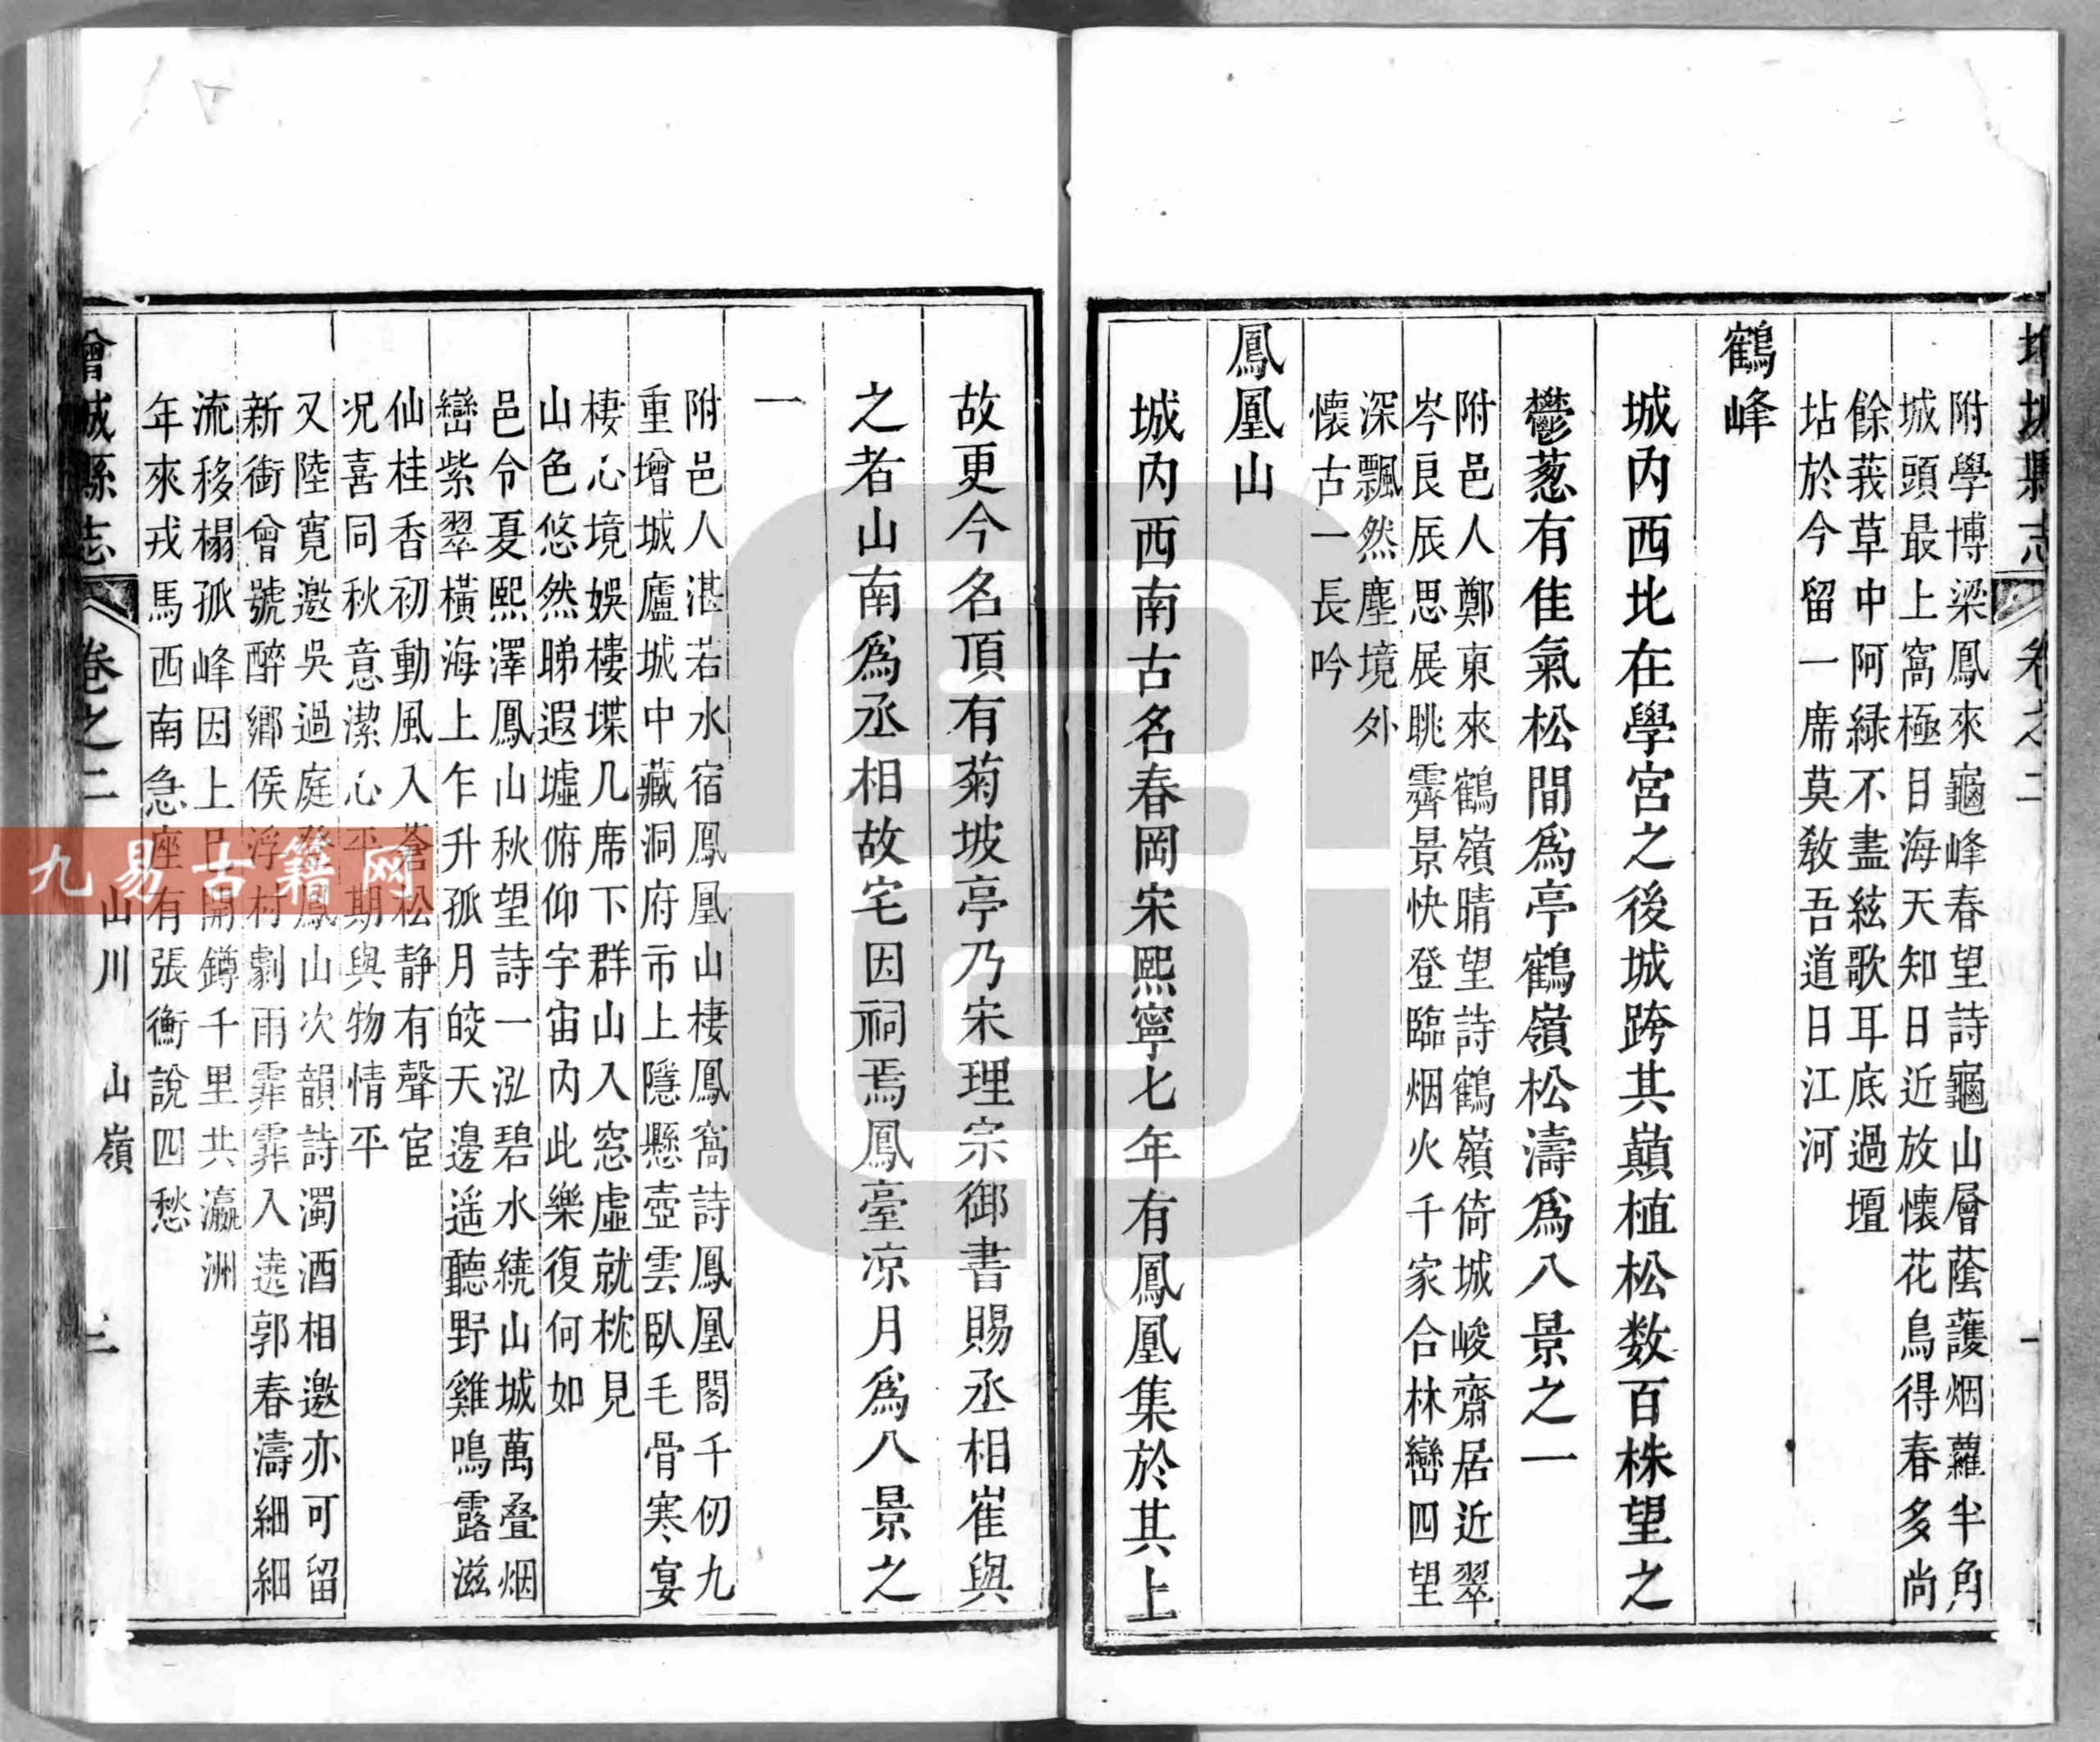 增城縣志 卷之二
附學博梁鳳來龜峰春望詩龜山層蔭護烟蘿半角
城頭最上窩極目海天知日近放懷花鳥得春多尚
餘莪草中阿緑不盡絃歌耳底過壇
坫於今留一席莫敎吾道日江河
鶴峰
城內西北在學宮之後城跨其巔植松数百株望之
鬱葱有佳氣松間為亭鶴嶺松濤為八景之一
附邑人鄭東來鶴嶺晴望詩鶴嶺倚城峻齋居近翠
岑良辰思展眺霽景快登臨烟火千家合林巒四望
深飄然塵境外
懷古一長吟
鳳凰山
城內西南古名春岡宋熙寧七年有鳳凰集於其上
故更今名頂有菊坡亭乃宋理宗御書賜丞相崔與
之者山南為丞相故宅因祠焉鳳臺凉月為八景之
一
附邑人湛若水宿鳳凰山棲鳳窩詩鳳凰閣千仞九
重增城廬城中藏洞府市上隱懸壺雲臥毛骨寒宴
棲心境娛樓堞几席下群山入窓虛就枕見
山色悠然睇遐墟俯仰宇宙內此樂復何如
邑令夏熙澤鳳山秋望詩一泓碧水繞山城萬叠烟
巒紫翠橫海上乍升孤月皎天邊遥聽野雞鳴露滋
仙桂香初動風入蒼松静有聲宦
况喜同秋意潔心平期與物情平
又陸寬邀吳過庭登鳳山次韻詩濁酒相邀亦可留
新銜曾號醉鄉侯浮村劇雨霏霏入遶郭春濤細細
流移榻孤峰因上巳開鐏千里共瀛洲
年來戎馬西南急座有張衡說四愁
曾城縣志 卷之二 山川 山嶺 三
九易古籍网